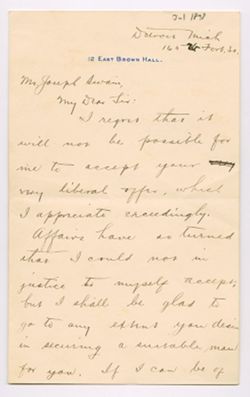 Detroit Mich
165 Fort. St.
12 EAST BROWN HALL.
Mr. Joseph Swain,
My Dear Sir:
I regret that it
will not be possible for
me to accept your
very liberal offer, which
I appreciate exceedingly.
Affairs have so turned
that I could not in
justice to myself accept,
but I shall be glad to
go to any extent you desire
in securing a suitable man
for you. If I can be of